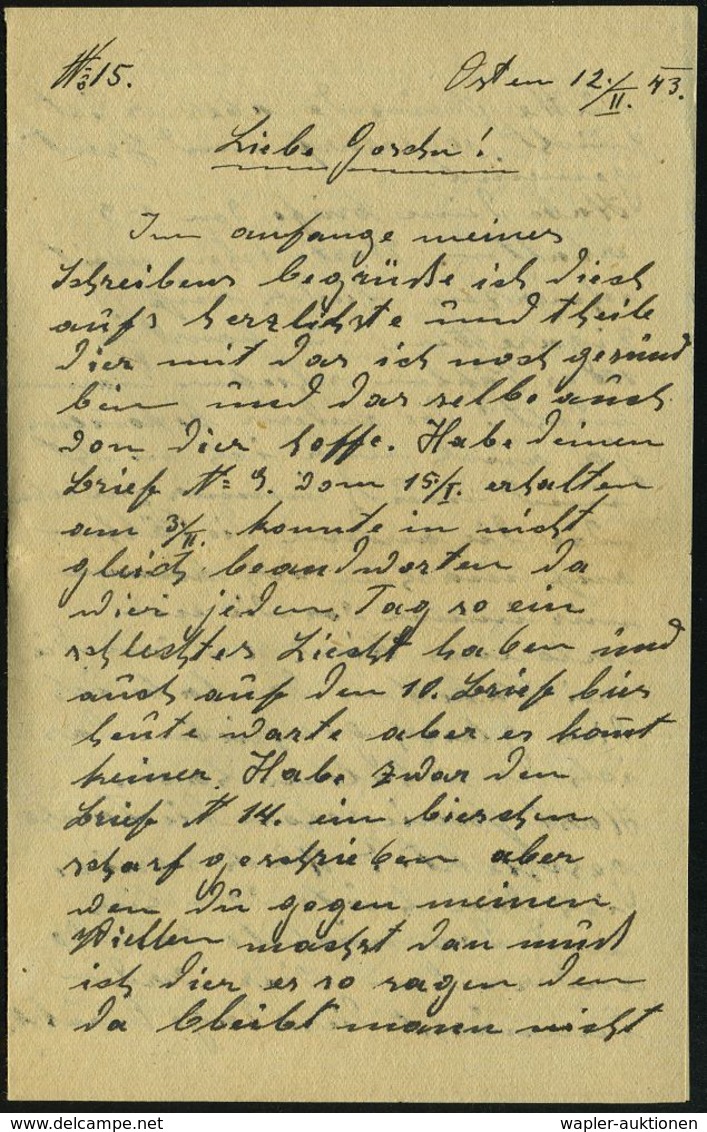 No 15.
Osten 12./II. 43.
Liebe Goschn!
Im anfange meines
Schreibens begrüße ich diech
aufs herzlichste und theile
dier mit das ich noch gesund
bin und das selbe auch
von dier hoffe. Habe deinen
Brief N= 9. vom 15./I. erhalten
am 3./II. konnte in nicht
gleich beandworten da
wier jeden Tag so ein
schlechtes Liecht haben und
auch auf den 10. Brief bies
heute warte aber es komt
keiner. Habe zwar den
Brief N 14. ein bieschen
scharf geschrieben aber
wen du gegen meinen
Wiellen machst dan muß
ich dier es so sagen den
da bleibt mann nicht
wapler-auktionen